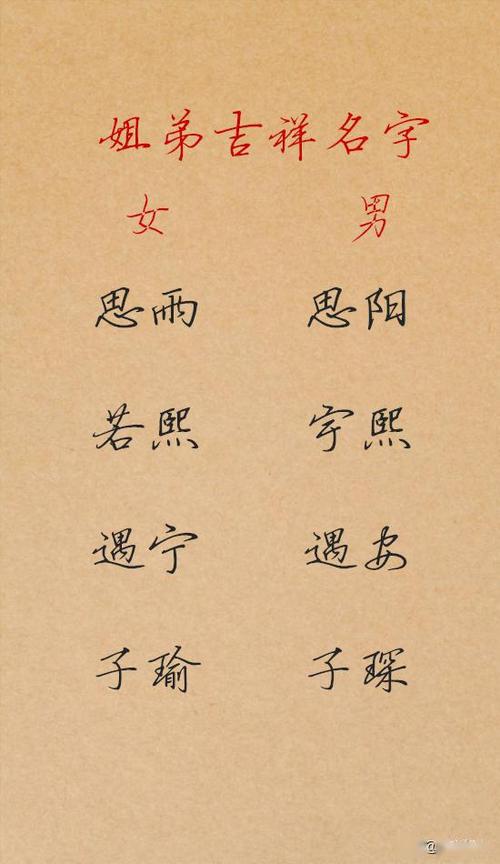 姐弟吉祥名字
女 男
思雨 思阳
若熙 宇熙
遇宁 遇安
子瑜 子琛
@